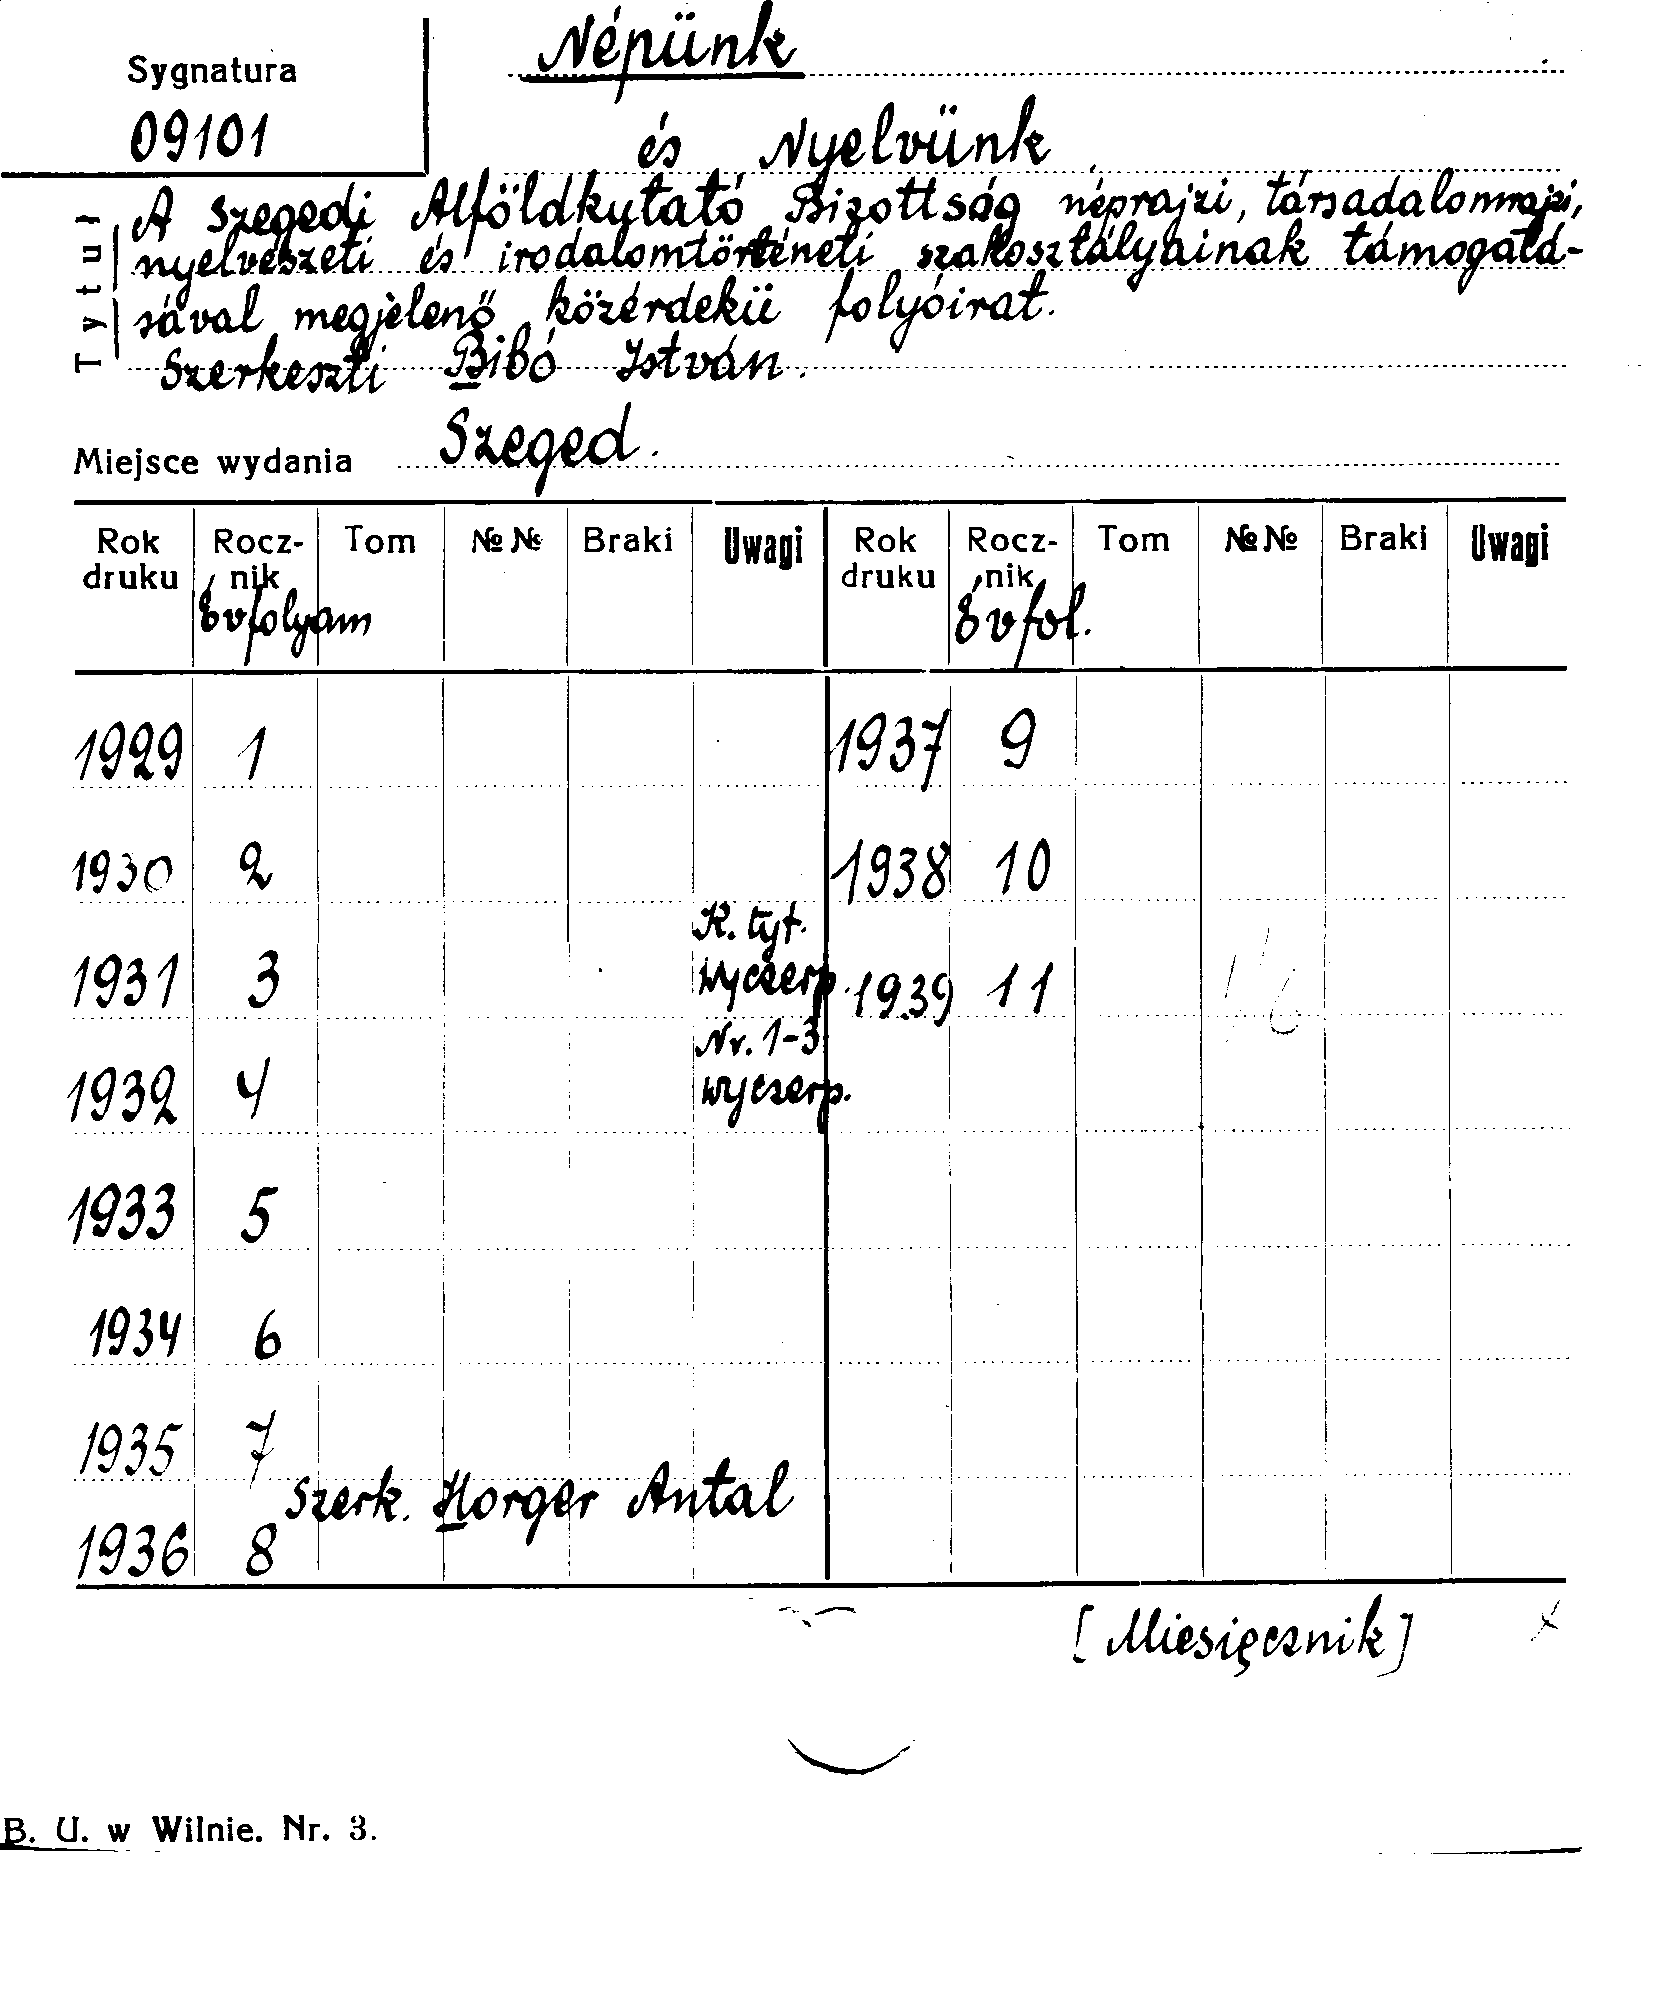 Sygnatura
09101
Népünk
és Nyelvünk
Tytuł
A Szegedi Alföldkutató Bizottság néprajzi, társadalomrajzi,
nyelvészeti és irodalomtörténeti szakosztályainak támogatá-
sával megjelenő közérdekü folyóirat.
Szerkeszti Bibó István.
Miejsce wydania Szeged.
Rok druku Rocz-nik Tom №№ Braki Uwagi Rok druku Rocz-nik Tom №№ Braki Uwagi
Évfolyam Évfol.
1929 1 1937 9
1930 2 1938 10
K. tyt.
1931 3 wyczerp. 1939 11
Nr. 1-3
1932 4 wyczerp.
1933 5
1934 6
1935 7
Szerk. Horger Antal
1936 8
[Miesięcznik]
B. U. w Wilnie. Nr. 3.